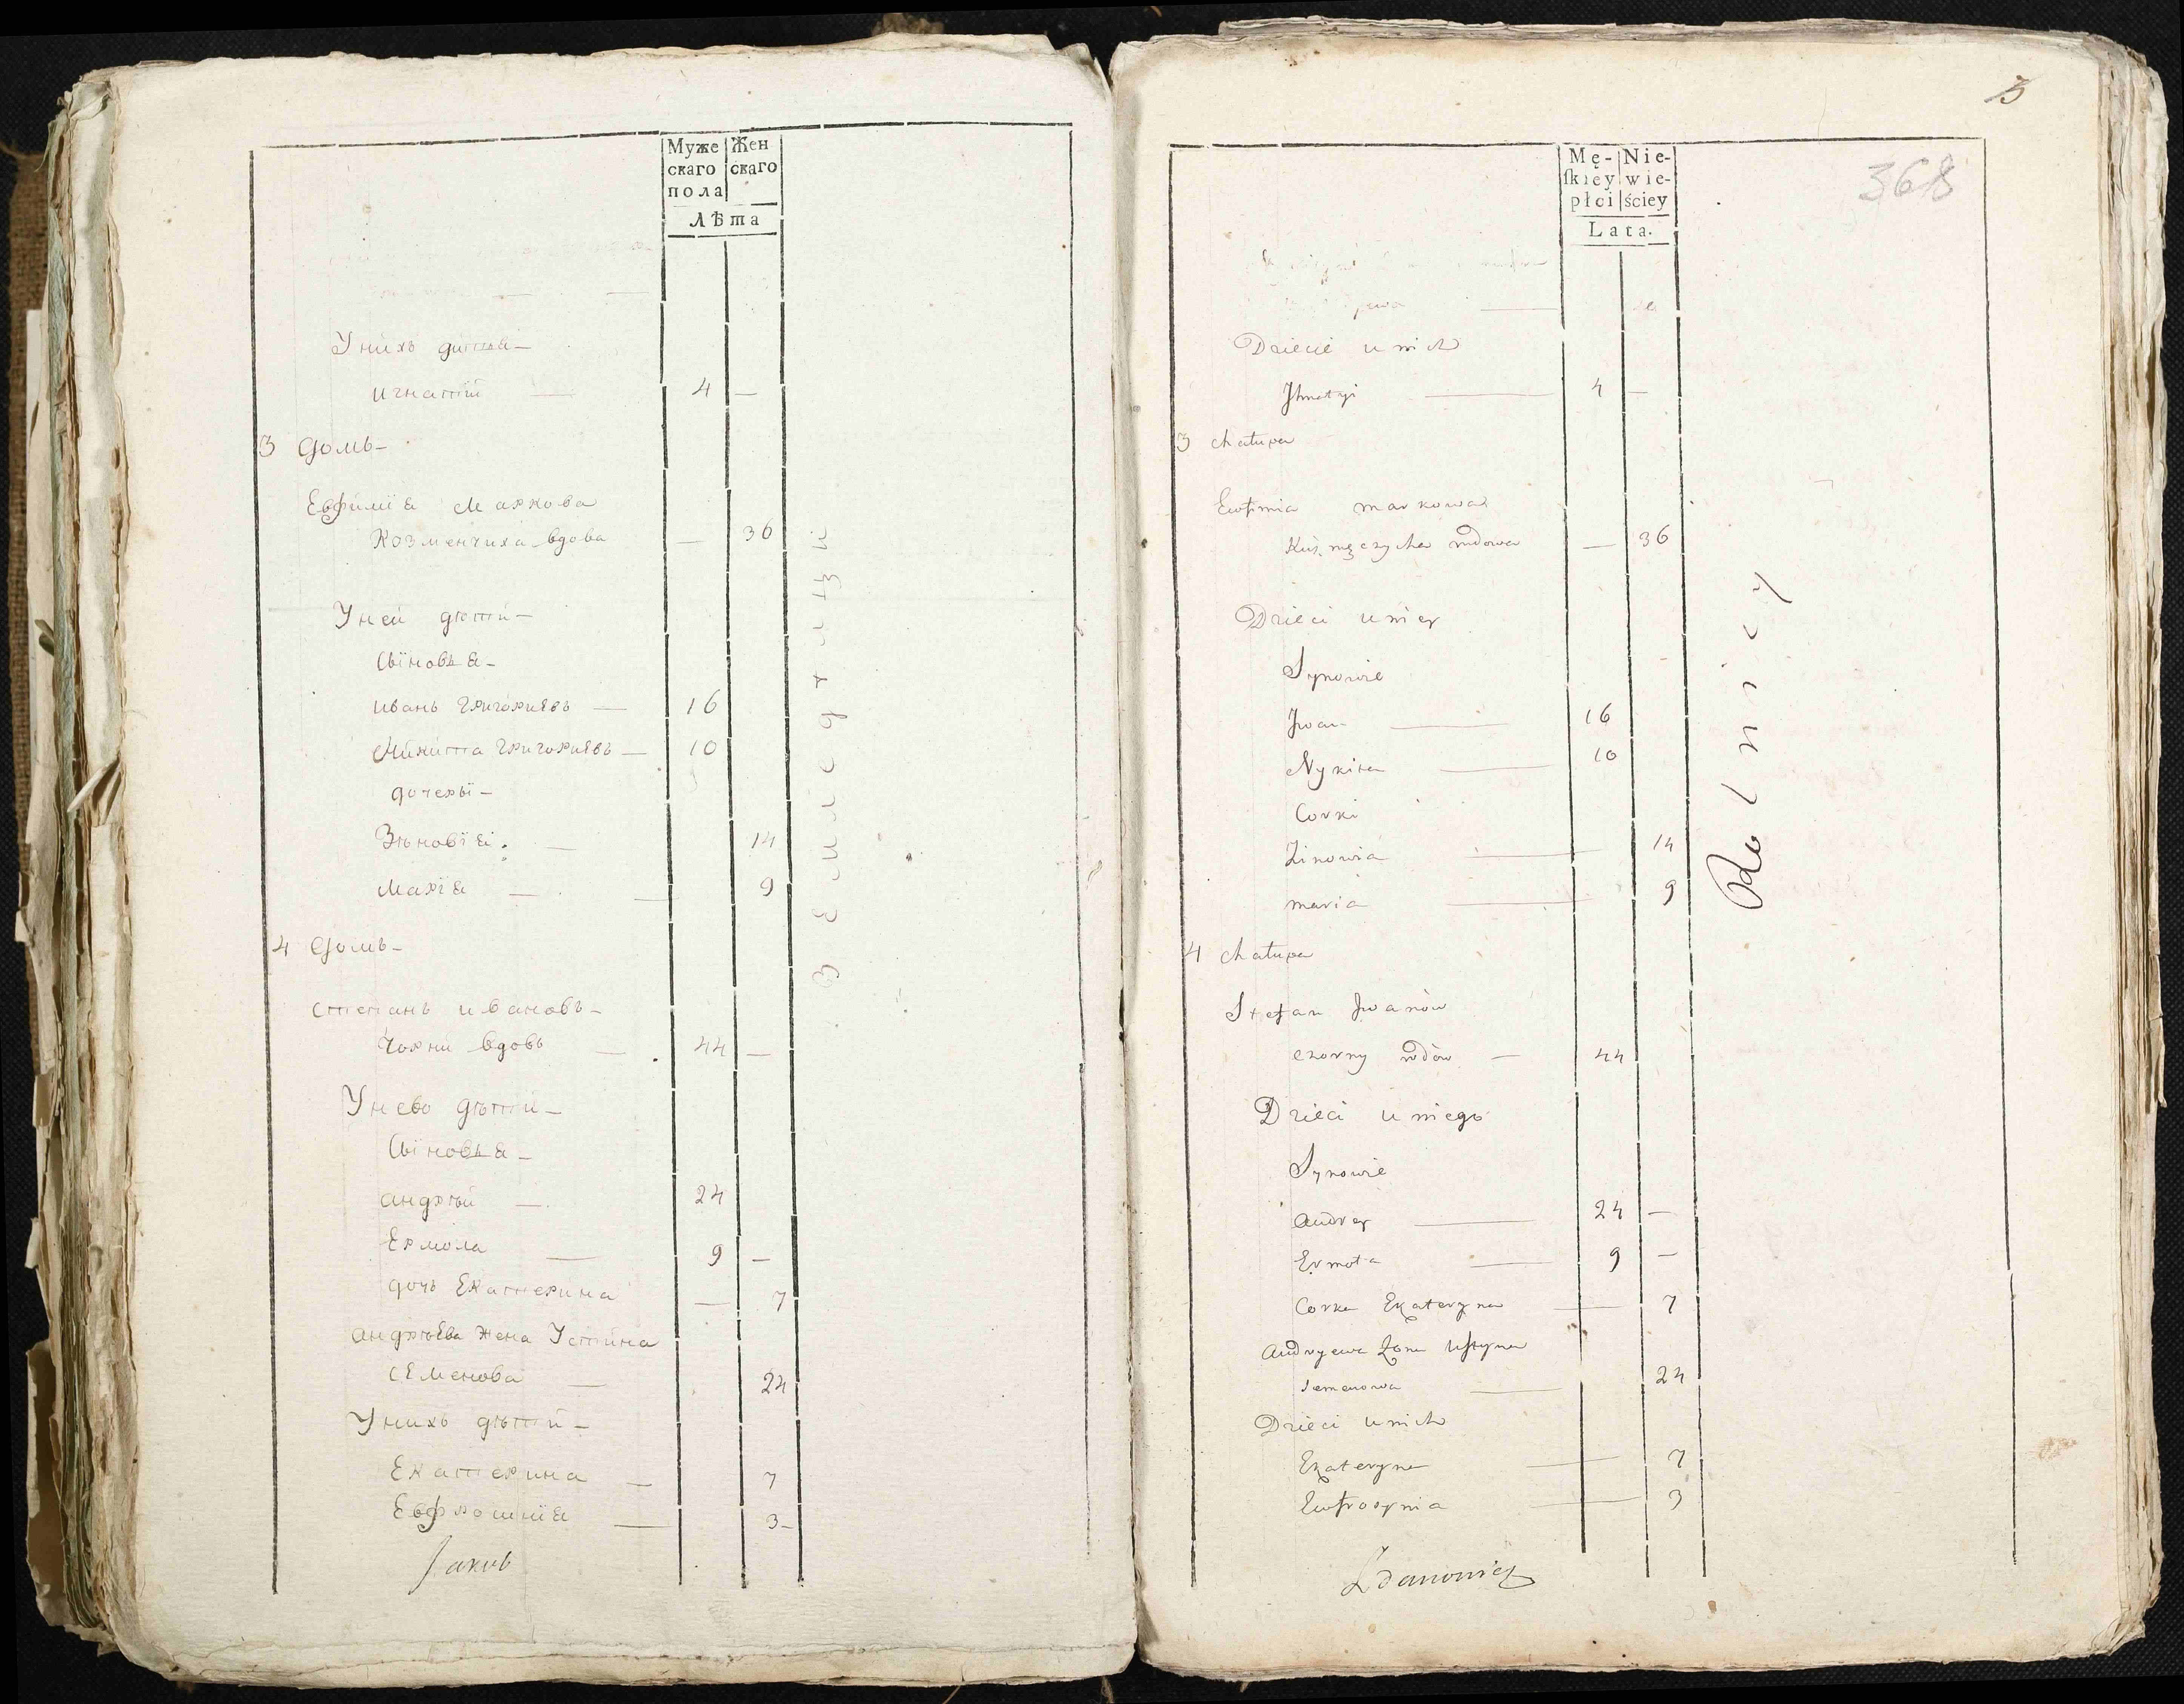 Муже Жен
скаго скаго
пола
Лѣта
Унихъ дитья-
игнатий — 4 —
3 домъ-
Евфимїя Маркова
Козменчиха вдова — 36
Уней дѣти-
Сыновья-
иванъ григориевъ — 16
Микита григориевъ — 10
дочеры-
Зѣновїя: — 14
Марїя — 9
4 домъ-
степанъ ивановъ-
Чорни вдовъ — 44 —
Унево дѣти-
Сыновья-
андрѣй — 24
Ермола — 9 —
дочь Екатерина — 7
андрѣева жена Устина
семенова — 24
Унихъ дѣти-
Екатерина — 7
Евфрошнїя — 3-
Jakub
Земледѣлцы
5
368
Mę- Nie-
ſkiey wie-
płci ściey
Lata.
Dziecie u nich
Jhnatyi — 4 —
3 chatupa
Eufimia markowa
Kuźmęczycha wdowa — 36
Dzieci u niey
Synowie
Jwan — 16
Nykita — 10
Corki
Zinowia — 14
maria — 9
4 chatupa
Stefan Jwanów
czorny wdów — 44
Dzieci u niego
Synowie
Andrey — 24 —
Ermoła — 9 —
Corka Ekateryna — 7
Andryewa żona Ustyna
semenowa — 24
Dzieci u nich
Ekateryna — 7
Eufrosynia — 3
Zdanowicz
Rolnicy